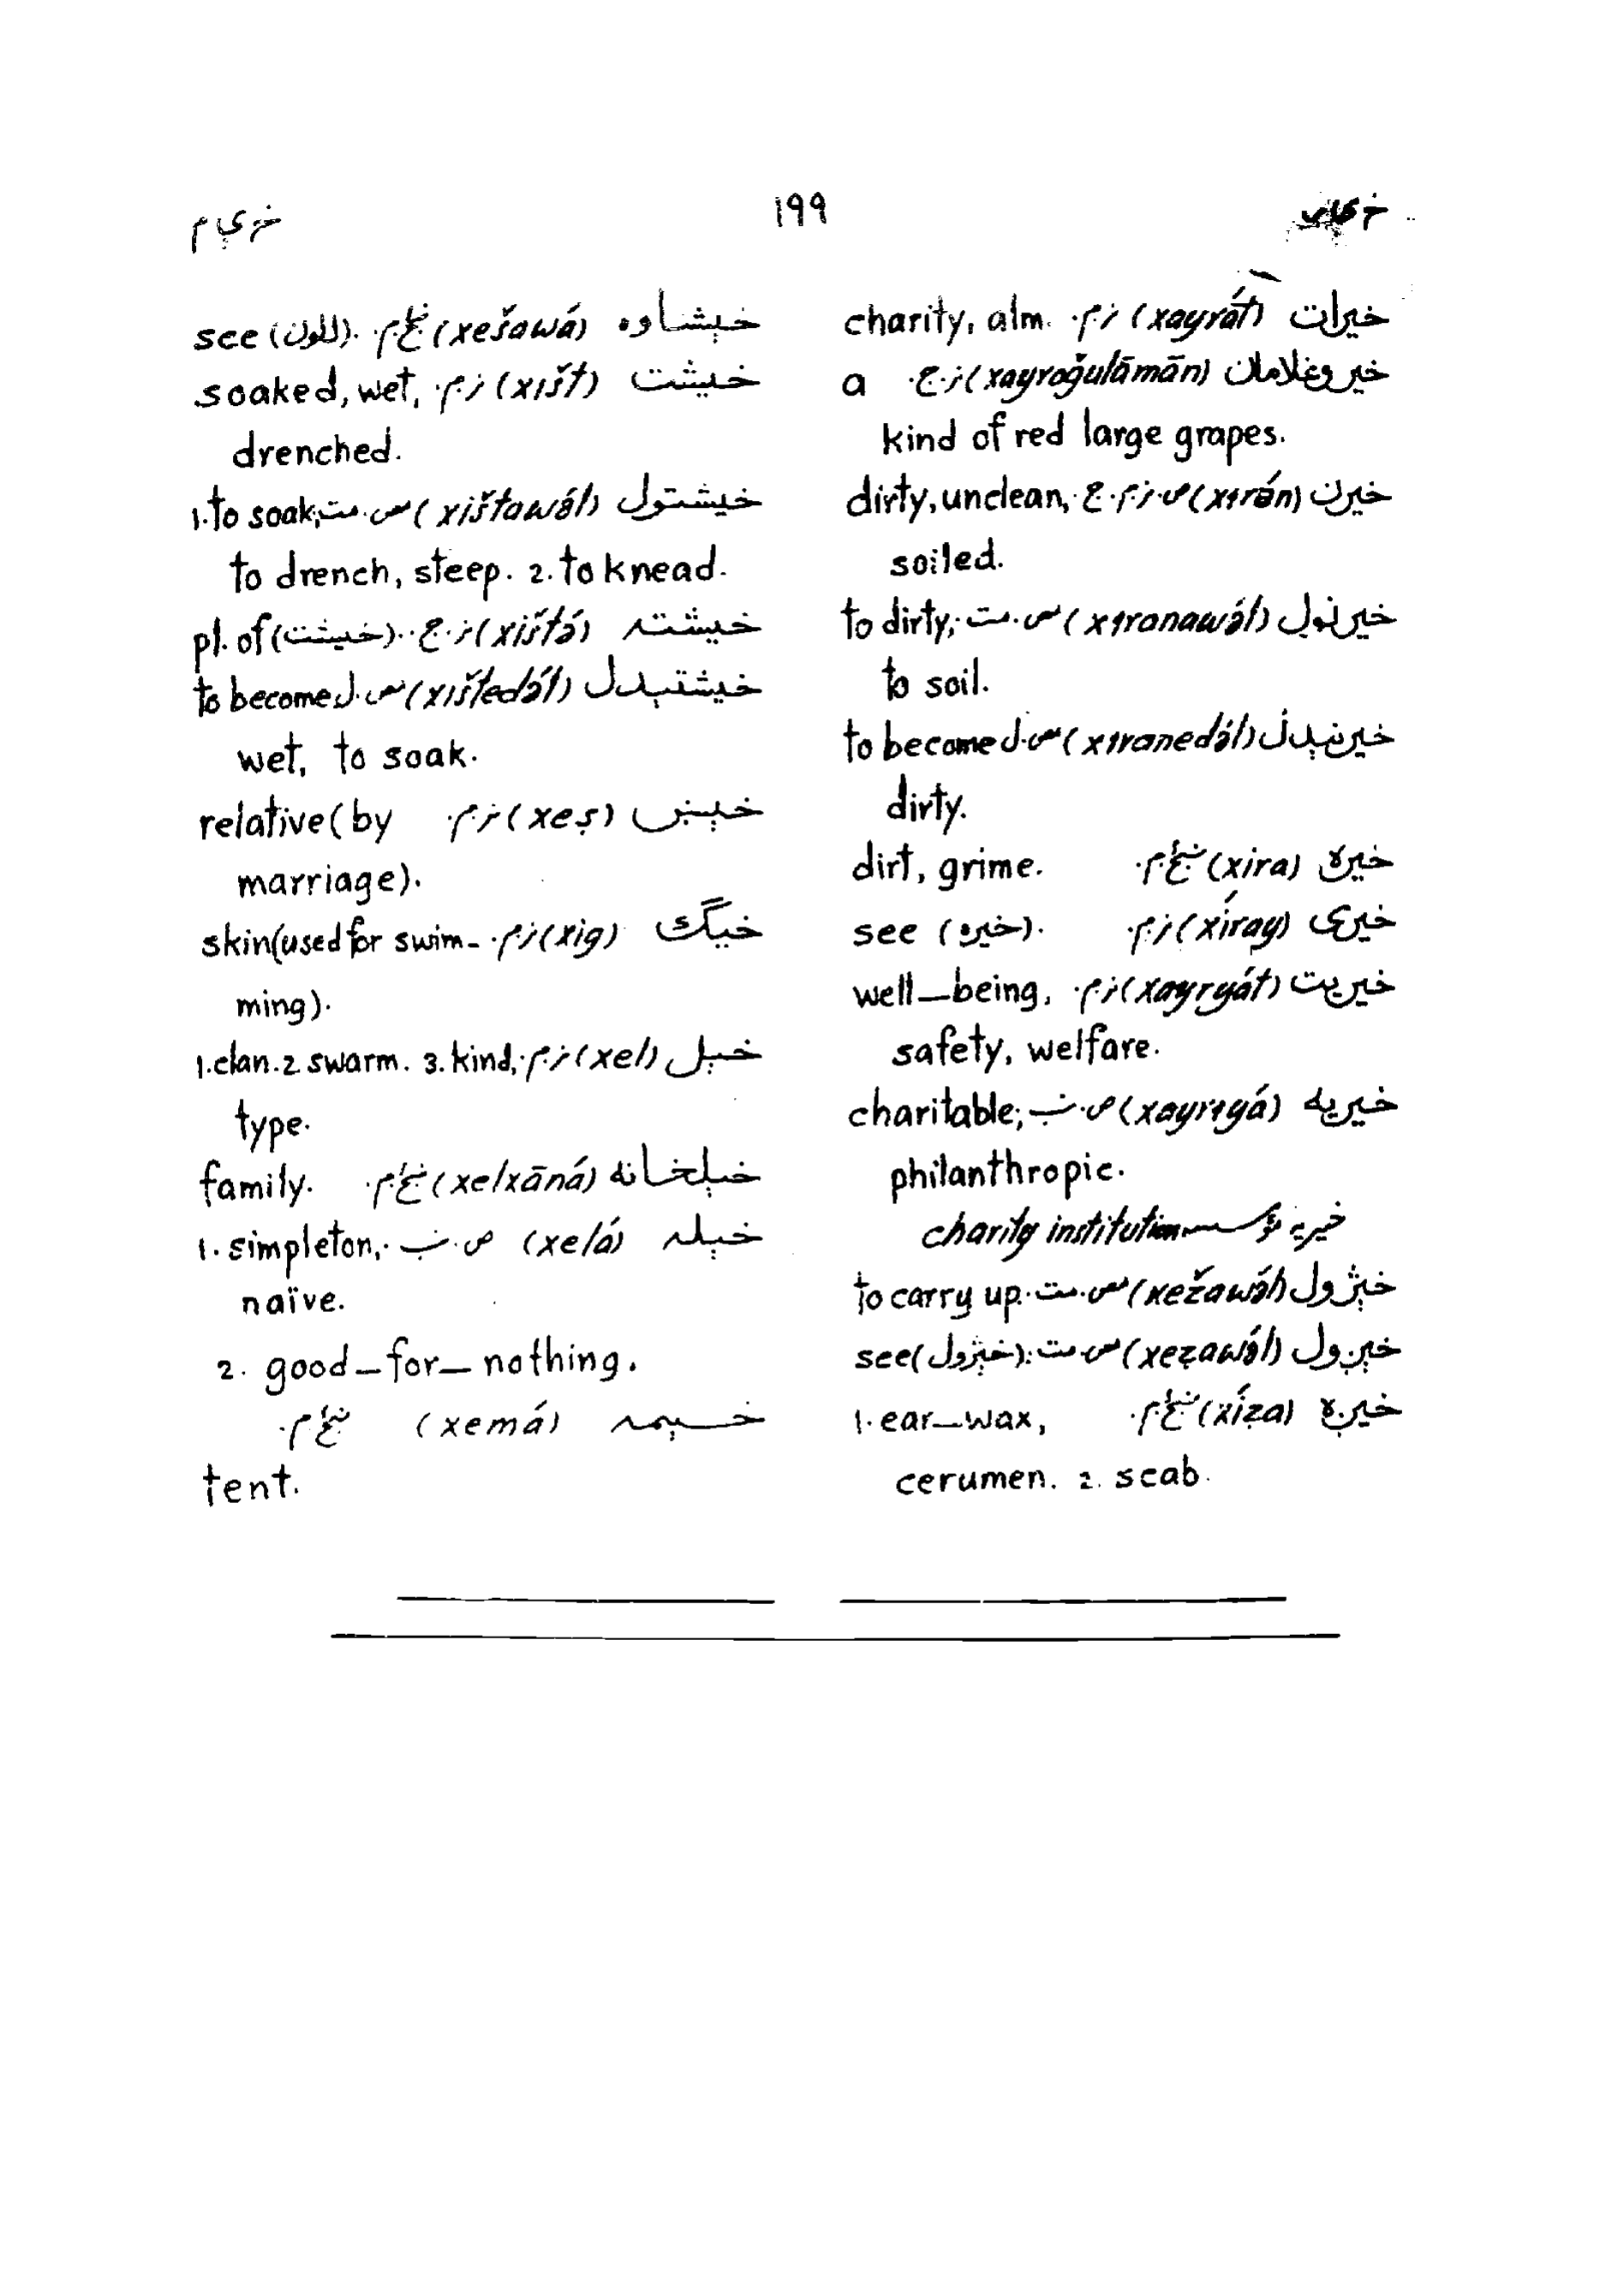 خ ي م
١٩٩
خيرات (xayrát) ز.م. charity, alm.
خيروغلامان (xayroğulāmān) ز.ج. a
kind of red large grapes.
خيرن (xırán) ص.ز.م.ج. dirty, unclean,
soiled.
خيرنول (xıranawә́l) مص.مت. to dirty,
to soil.
خيرنېدل (xıranedә́l) مص.ل to become
dirty.
خيره (xira) ښځ.م. dirt, grime.
خيرى (xíray) ز.م. see (خيره).
خيريت (xayryát) ز.م. well-being,
safety, welfare.
خيريه (xayrıyá) ص.ښ. charitable;
philanthropic.
خيريه مؤسسه charity institution
خېژول (xežawә́l) مص.مت. to carry up.
خېږول (xeẓawә́l) مص.مت. see (خېژول).
خيږه (xíẓa) ښځ.م. 1. ear-wax,
cerumen. 2. scab.
خېشاوه (xešawá) ښځ.م. see (للون).
خيشت (xıšt) ز.م. soaked, wet,
drenched.
خيشتول (xištawә́l) مص.مت. 1. to soak,
to drench, steep. 2. to knead.
خيشته (xištә́) ز.ج. pl. of (خيشت).
خيشتېدل (xıštedә́l) مص.ل to become
wet, to soak.
خېښ (xeṣ) ز.م. relative (by
marriage).
خيگ (xig) ز.م. skin (used for swim-
ming).
خېل (xel) ز.م. 1. clan. 2. swarm. 3. kind,
type.
خېلخانه (xelxāná) ښځ.م. family.
خېله (xelá) ص.ښ. 1. simpleton,
naïve.
2. good-for-nothing.
خېمه (xemá) ښځ.م.
tent.